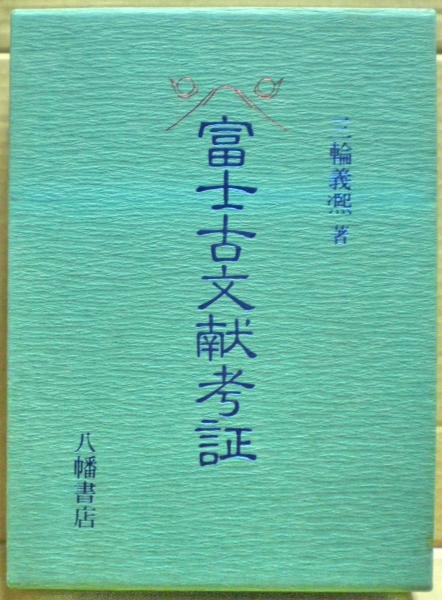 三輪義熈 著
富士古文献考証
八幡書店